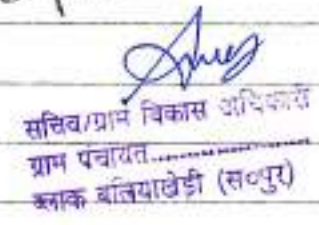 सचिव/ग्राम विकास अधिकारी
ग्राम पंचायत..................
ब्लाक बलियाखेडी (स०पुर)